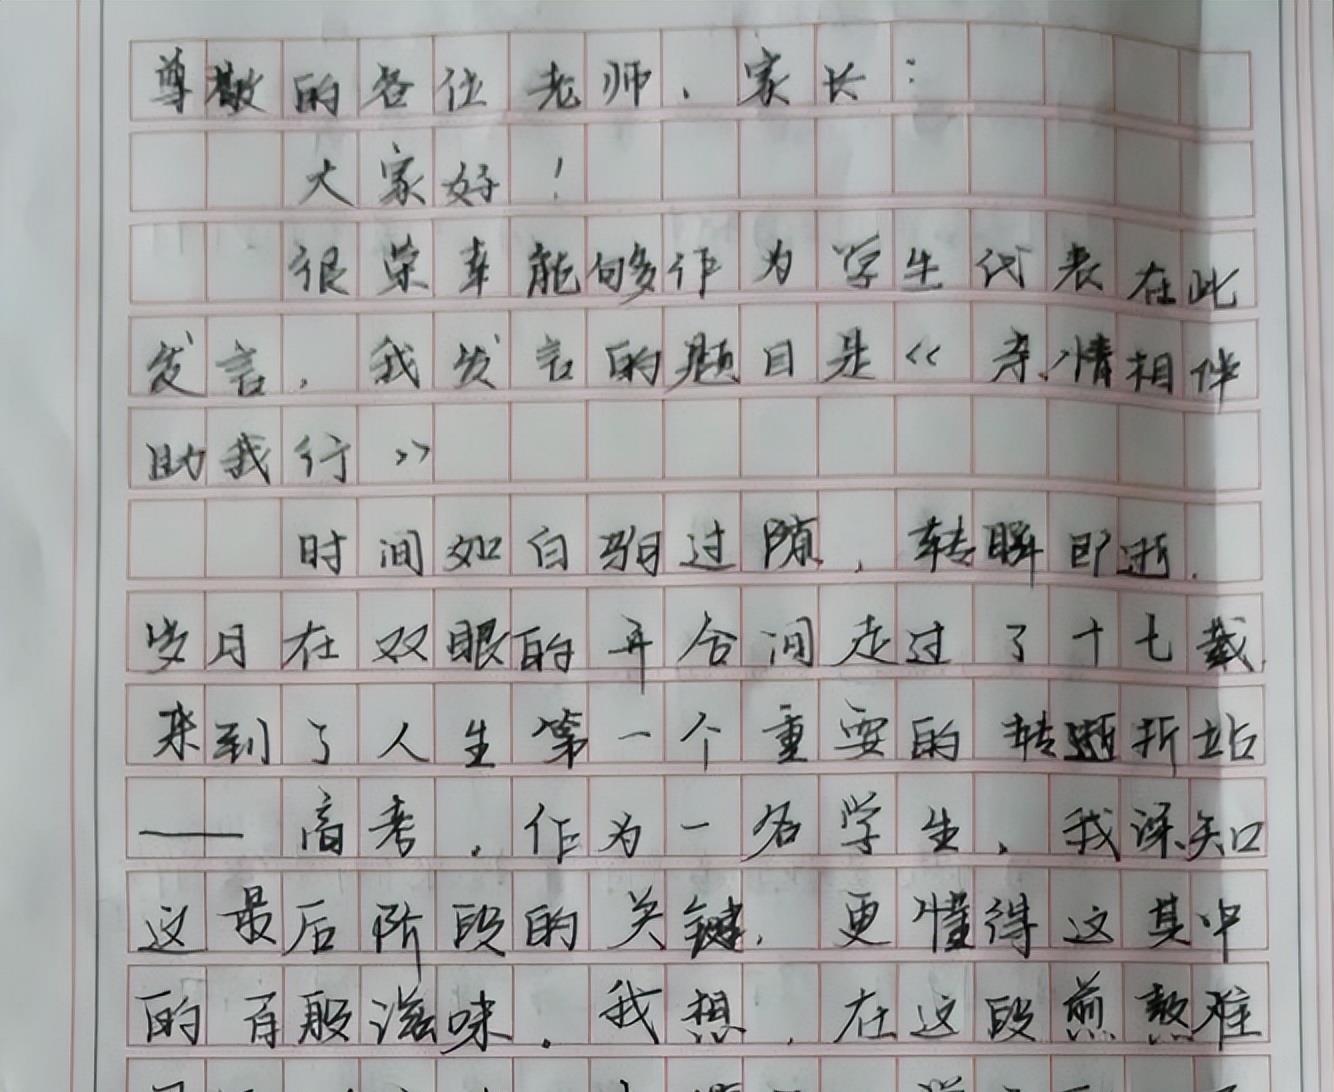 尊敬的各位老师、家长:
大家好!
很荣幸能够作为学生代表在此
发言,我发言的题目是《亲情相伴
助我行》
时间如白驹过隙,转瞬即逝,
岁月在双眼的开合间走过了十七载,
来到了人生第一个重要的转折站
——高考。作为一名学生,我深知
这最后阶段的关键,更懂得这其中
的百般滋味。我想,在这段煎熬难